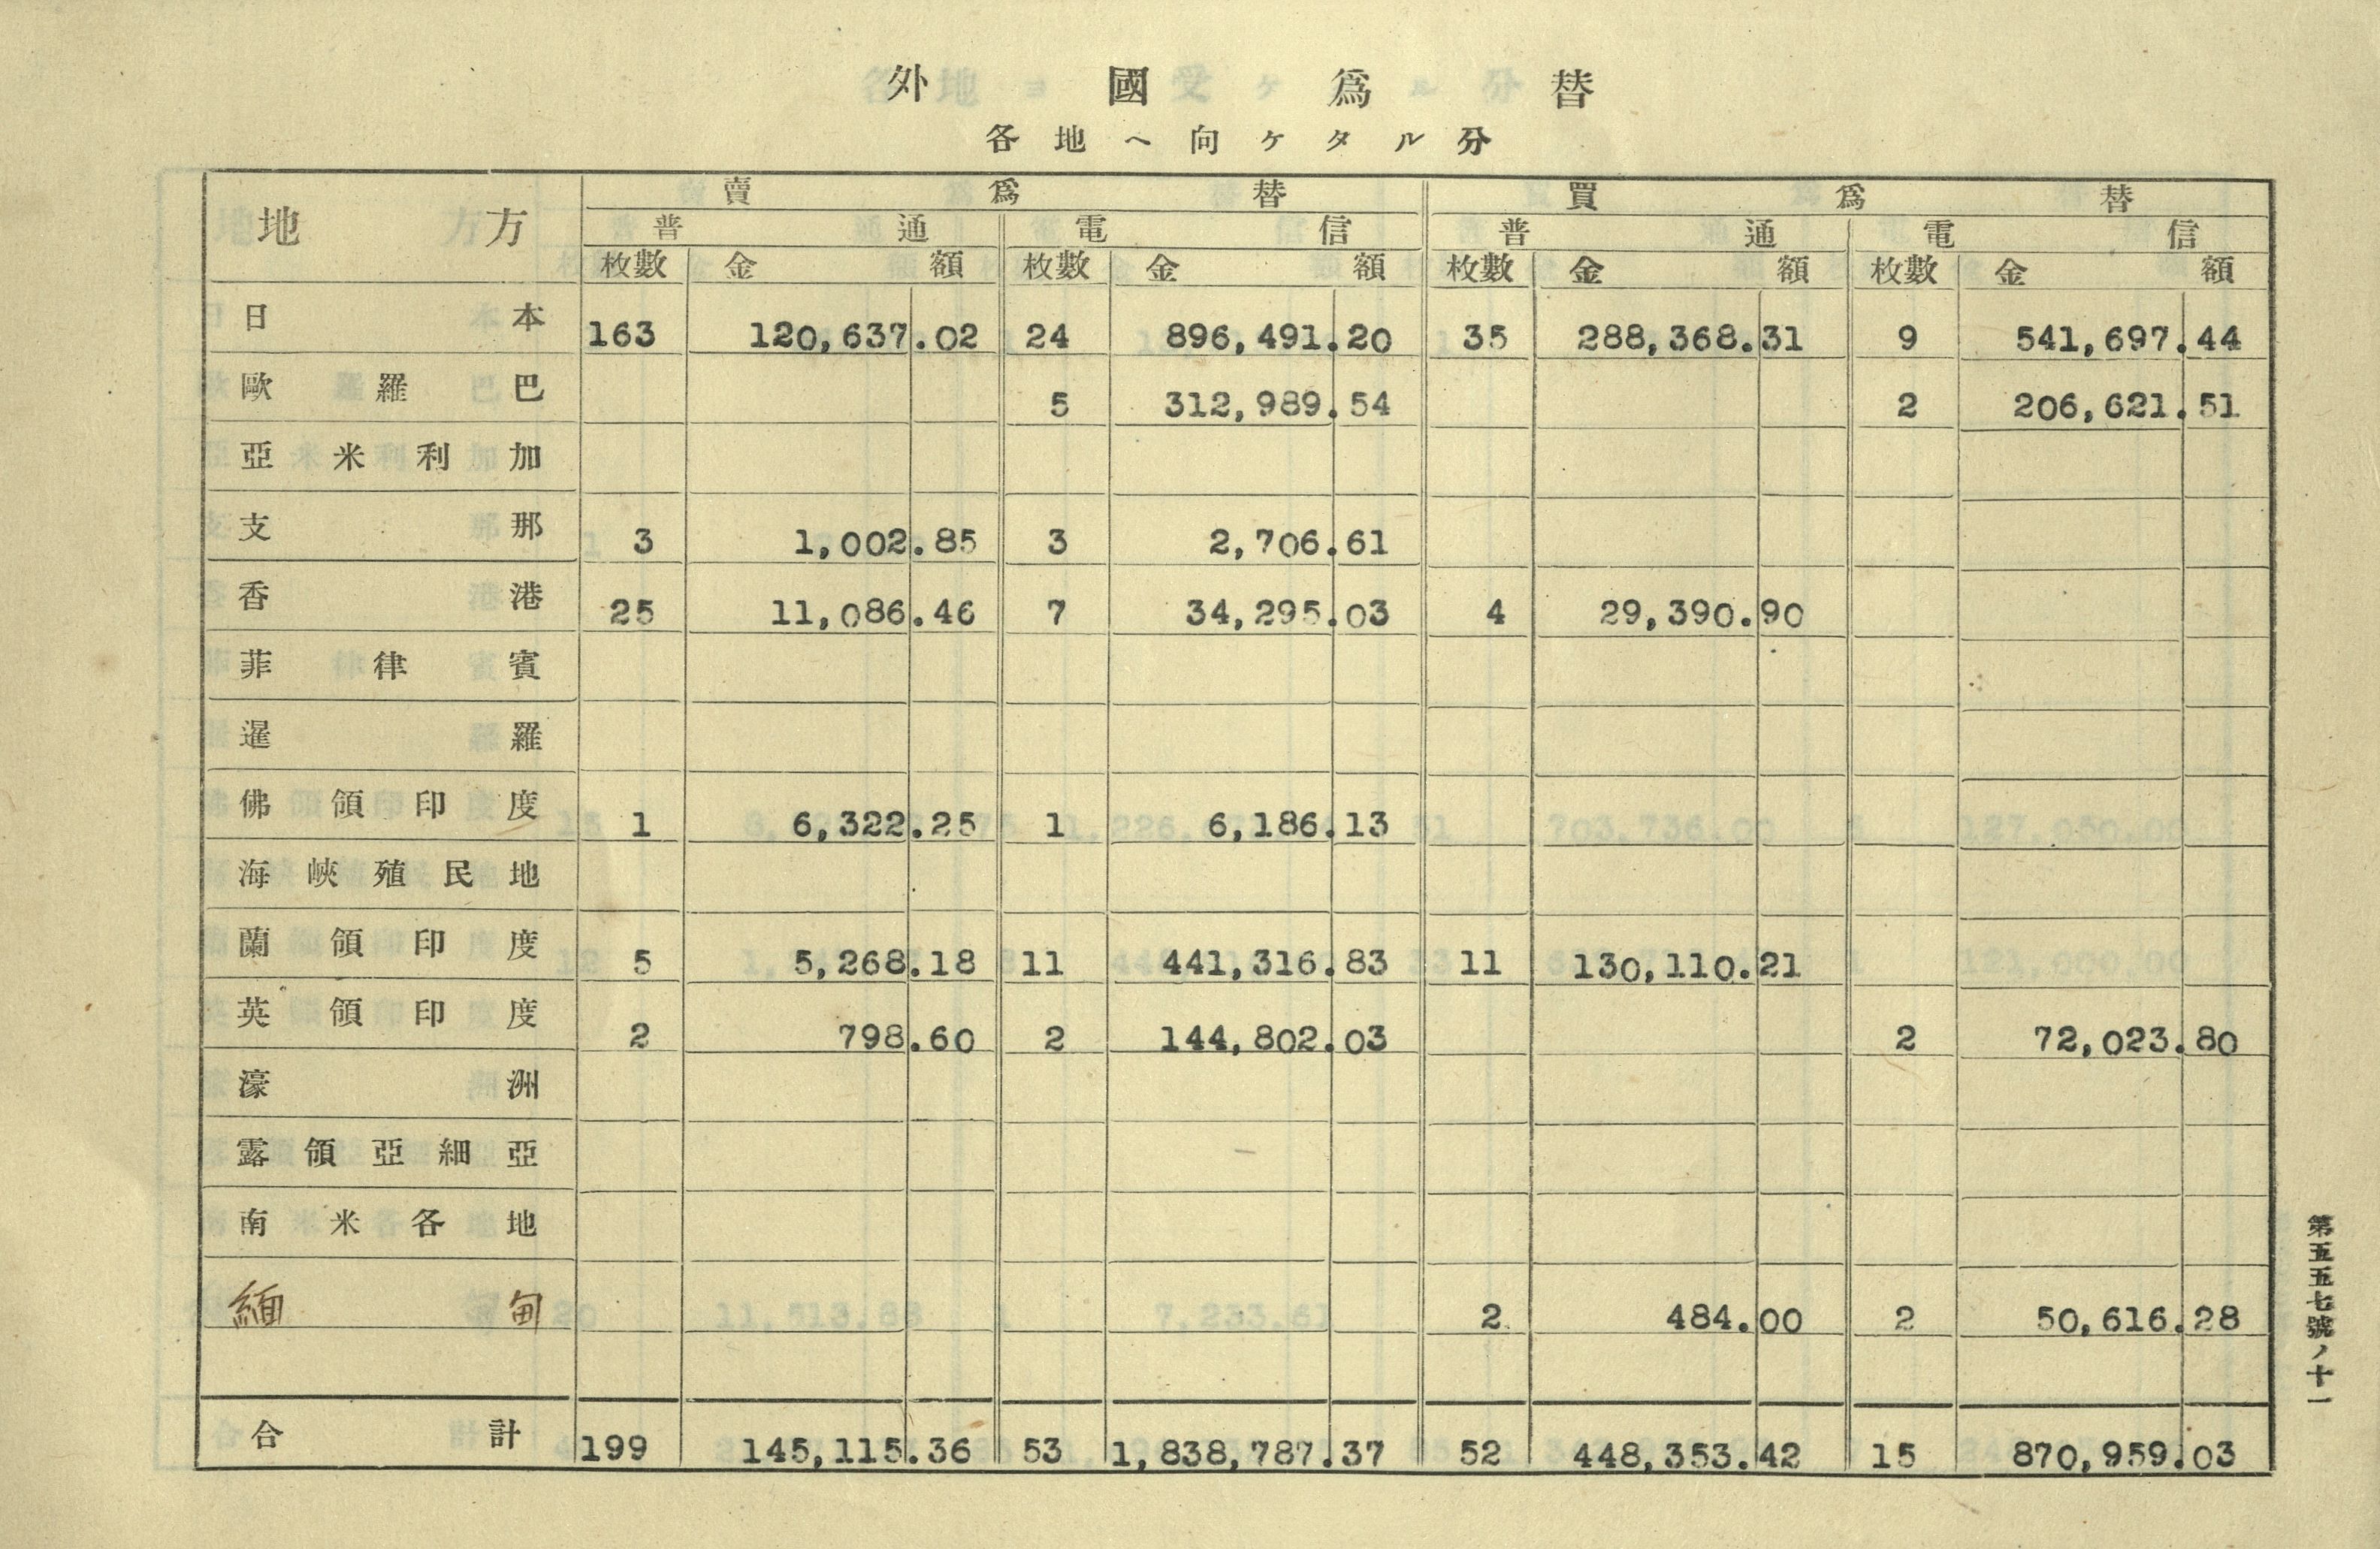 外國爲替
各地ヘ向ケタル分
地方 賣爲替 買爲替
普通 電信 普通 電信
枚數 金額 枚數 金額 枚數 金額 枚數 金額
日本 163 120,637.02 24 896,491.20 35 288,368.31 9 541,697.44
歐羅巴 5 312,989.54 2 206,621.51
亞米利加
支那 3 1,002.85 3 2,706.61
香港 25 11,086.46 7 34,295.03 4 29,390.90
菲律賓
暹羅
佛領印度 1 6,322.25 1 6,186.13
海峽殖民地
蘭領印度 5 5,268.18 11 441,316.83 11 130,110.21
英領印度 2 798.60 2 144,802.03 2 72,023.80
濠洲
露領亞細亞
南米各地
緬甸 2 484.00 2 50,616.28
合計 199 145,115.36 53 1,838,787.37 52 448,353.42 15 870,959.03
第五五七號ノ十一